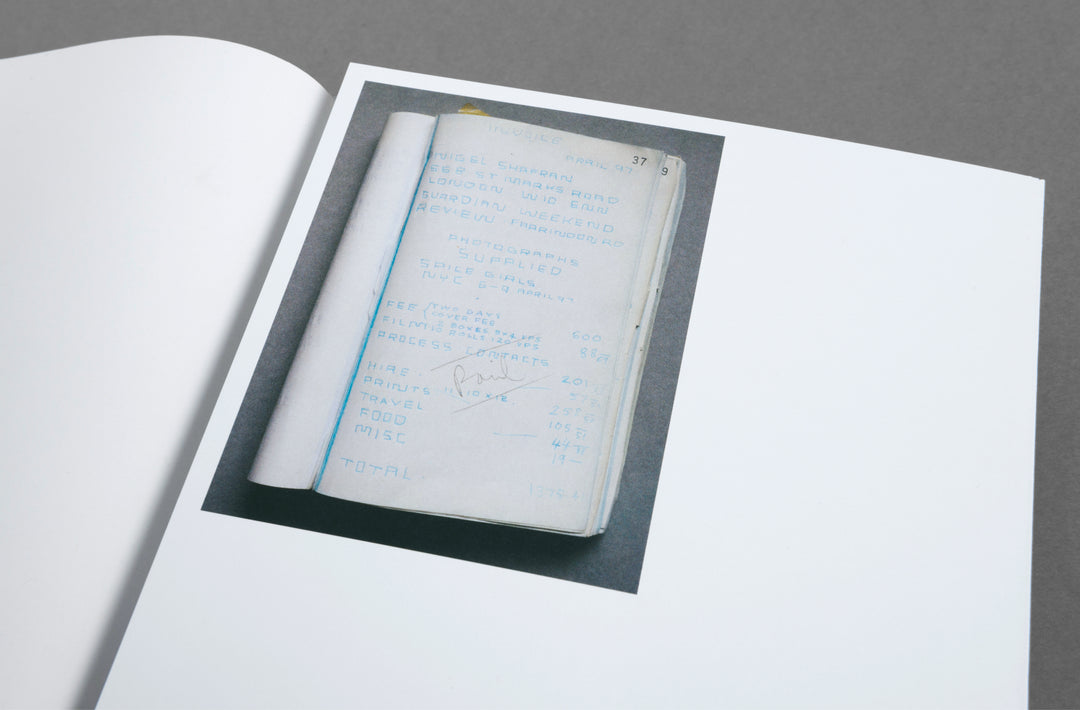 INVOICE
APRIL 97
37
9
NIGEL SHAFRAN
ST MARKS ROAD
LONDON W10
GUARDIAN WEEKEND
REVIEW FARRINDON RD
PHOTOGRAPHS
SUPPLIED
SPICE GIRLS
NYC 6-9 APRIL 97
FEE TWO DAYS
COVER FEE 600
FILM 2 BOXES
10 ROLLS 120 VPS
PROCESS CONTACTS
Paid
HIRE 201
PRINTS 10X12
TRAVEL
FOOD
MISC 19 –
TOTAL